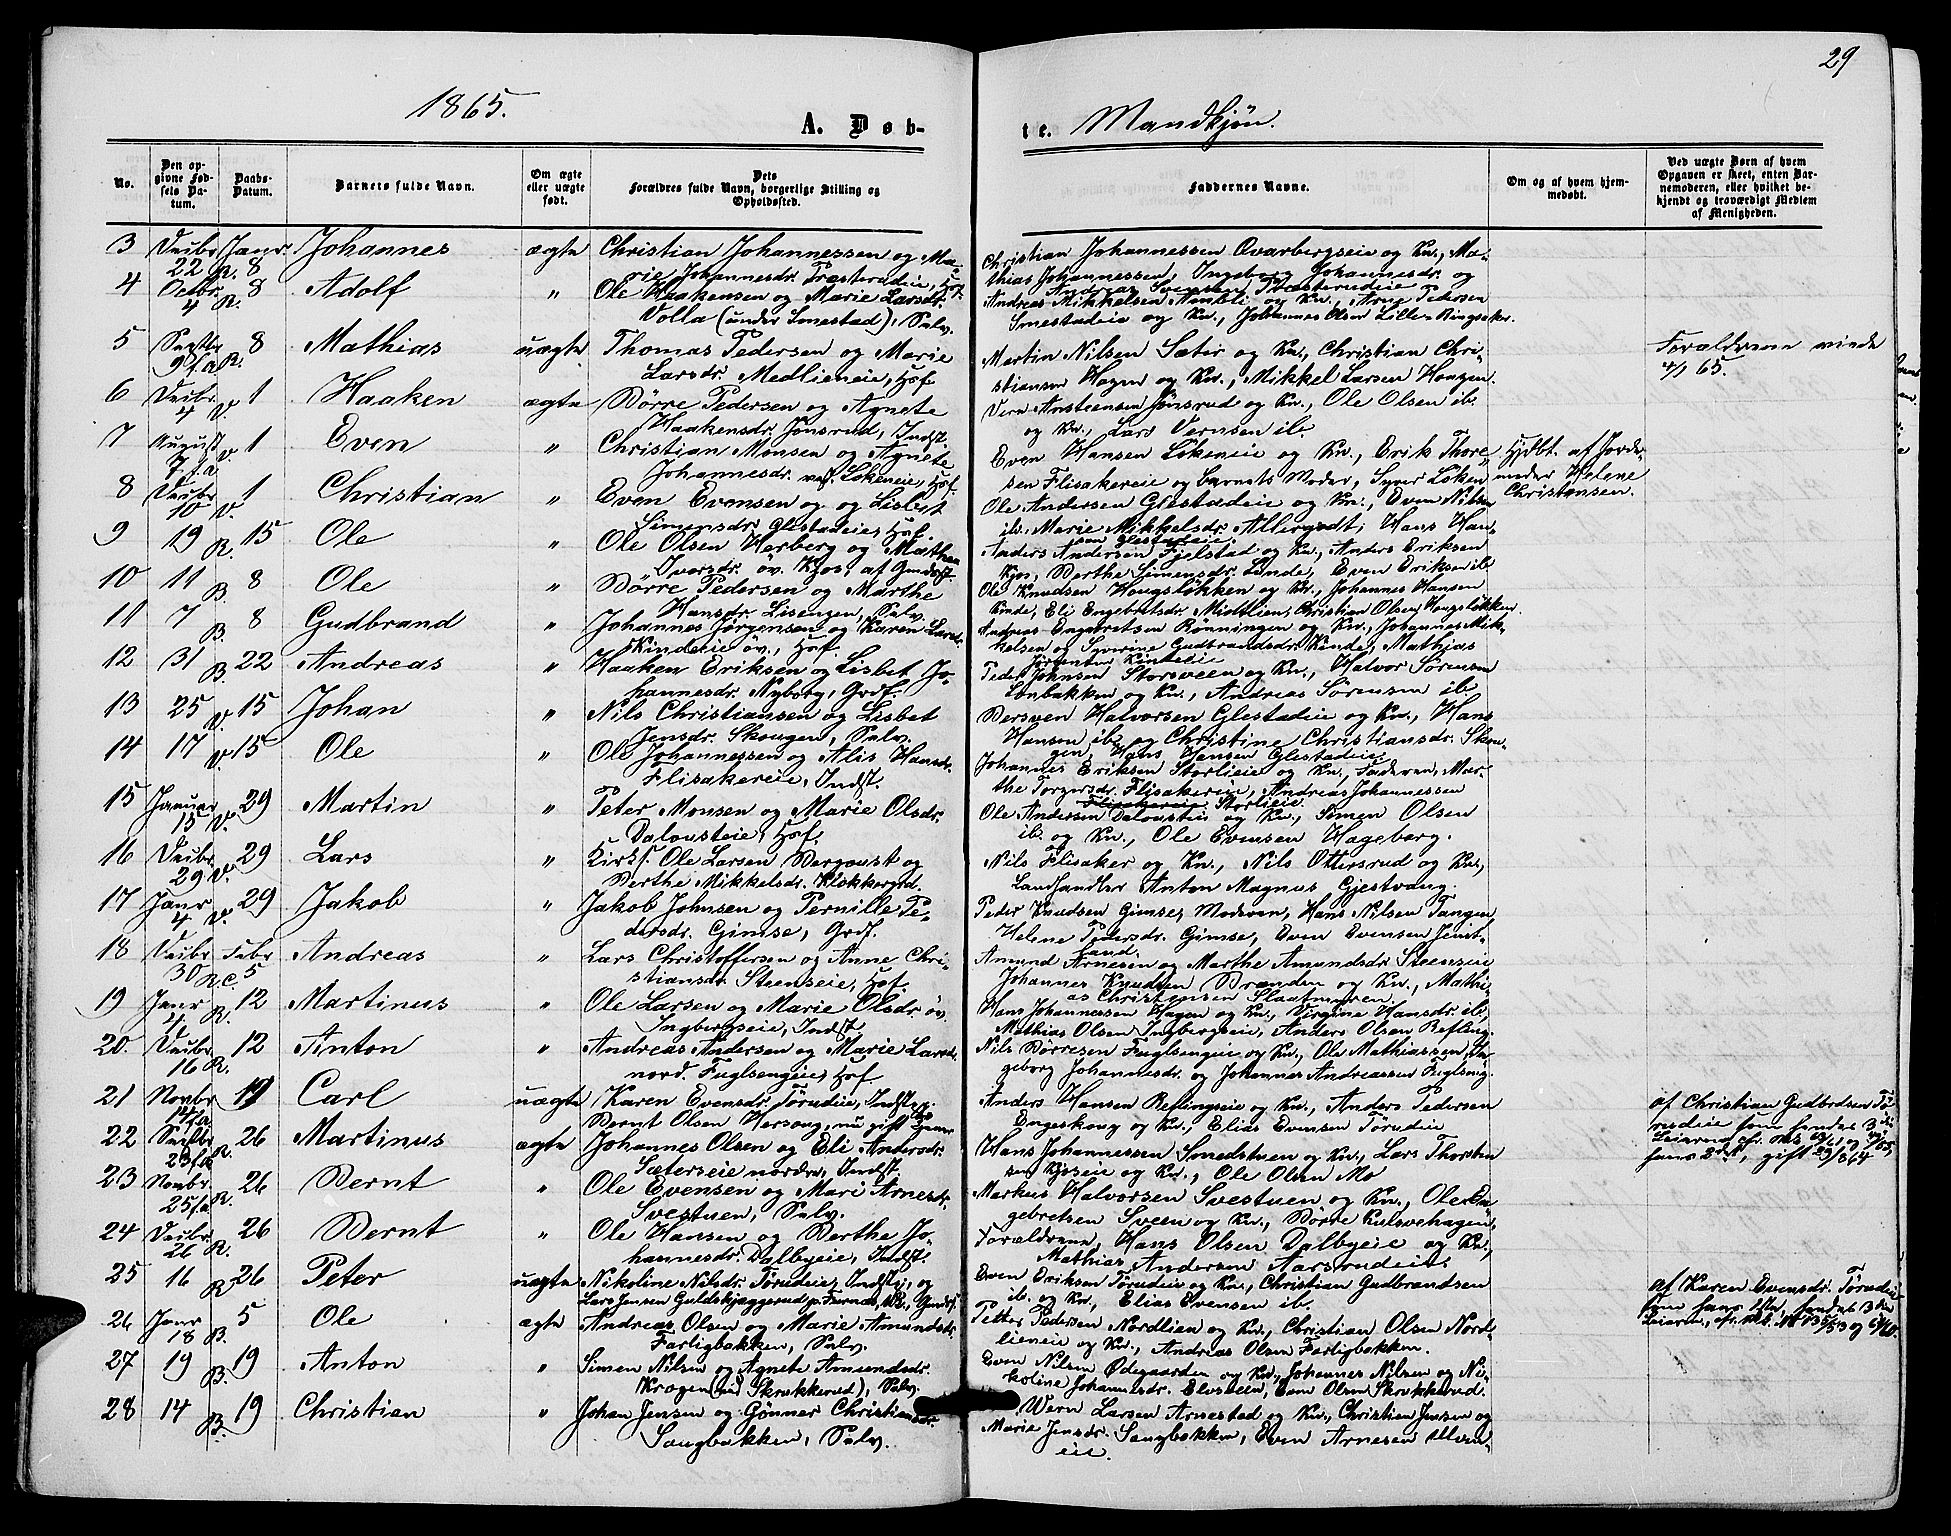 29
1865.
A. Døb-
te. Mandkjøn.
No.
Den opgivne Fødsels Datum.
Daabs-Datum.
Barnets fulde Navn.
Om ægte eller uægte født.
Dets Forældres fulde Navn, borgerlige Stilling og Opholdssted.
Faddernes Navne.
Om og af hvem hjemmedøbt.
Ved uægte Børn af hvem Opgaven er skeet, enten Barnemoderen, eller hvilket bekjendt og troværdigt Medlem af Menigheden.
3 Decbr 22 Janr. R. 8 Johannes ægte Christian Johannessen og Ma-
rie Johannesdr. Træterudeie, Hof.
Christian Johannessen Ovarbergseie og Kn., Ma-
thias Johannessen, Ingeborg Johannesdr. og
Andreas Svensen Træterudeie
4 Octbr 4 R. 8 Adolf " Ole Haakensen og Marie Larsdr.
Volla (under Smestad), Sælv.
Andreas Mikkelsen Nimbli og Kn., Arne Pedersen
Smestadeie og Kn., Johannes Olsen Lille-Ringsaker.
5 Septbr 9 f.a. R. 8 Mathias uægte Thomas Pedersen og Marie
Larsdr. Medlieneie, Hof.
Martin Nilsen Sæter og Kn., Christian Chri-
stiansen Hagen og Kn., Mikkel Larsen Haugen.
Forældrene viede
4/1 65.
6 Decbr 4 V. 1 Haaken ægte Börre Pedersen og Agnete
Haakensdr. Jönsrud, Indst.
Vern Ansteensen Jönsrud og Kn., Ole Olsen ib.
og Kn., Lars Vernsen ib.
7 August 7 f.a V. 1 Even " Christian Monsen og Agnete
Johannesdr. vest. Lökeneie, Hof.
Even Hansen Lökeneie og Kn., Erik Thore-
sen Flisakereie og barnets Moder, Syver Löken
Hjdbt. af Jorde-
moder Helene
Christensen.
8 Decbr 10 V. 1 Christian " Even Evensen og og Lisbet
Simensdr. Glestadeie, Hof.
Ole Andersen Glestadeie og Kn., Even Nilsen
ib. Marie Mikkelsdr. Allergodt, Hans Han-
sen Glestadeie.
9 19 R. 15 Ole " Ole Olsen Herberg og Marthea
Ivarsdr. öv. Kjos, af Gmdst.
Anders Andersen Fjelstad og Kn., Anders Eriksen
Kjos, Berthe Simensdr. Linde, Even Eriksen ib.
10 11 B. 8 Ole " Börre Pedersen og Marthe
Hansdr. Lisengen, Sælv.
Ole Knudsen Hougslökken og Kn., Johannes Hansen
Kinde, Eli Engebretsdr. Midtlien, Christian Olsen Hougslökken.
11 7 B. 8 Gudbrand " Johannes Jörgensen og Karen Larsdr.
Kindeie öv., Hof.
Andreas Engebretsen Rönningen og Kn., Johannes Mik-
kelsen og Syverine Gudbrandsdr. Kinde, Mathias
Jörgensen Kindeeie
12 31 B. 22 Andreas " Haaken Eriksen og Lisbet Jo-
hannesdr. Nyborg, Grdf.
Peder Johnsen Storsveen og Kn., Halvor Sörensen
Lönbakken og Kn., Andreas Sörensen ib.
13 25 V. 15 Johan " Nils Christiansen og Lisbet
Jensdr. Skougen, Sælv.
Bersven Halvorsen Glestadeie og Kn., Hans
Hansen ib. og Christine Christiansdr. Skou-
gen, Hans Hansen Glestadeie
14 17 V. 15 Ole " Ole Johannessen og Alis Hansdr.
Flisakereie, Indst.
Johannes Eriksen Storlieie og Kn., Faderen, Mar-
the Torgersdr. Flisakereie, Andreas Johannessen
Flisakereie Storlieie
15 Januar 15 V. 29 Martin " Peter Monsen og Marie Olsdr.
Dalousteie, Hof.
Ole Andersen Dalousteie og Kn., Simen Olsen
ib. og Kn., Ole Evensen Hageborg.
16 Decbr. 29 V. 29 Lars " Kirkes. Ole Larsen Bergoust og
Berthe Mikkelsdr. Klokkergrd.
Nils Flisaker og Kn., Nils Ottersrud og Kn.,
Landhandler Anton Magnus Gjestvang.
17 Janr 4 V. 29 Jakob " Jakob Johnsen og Pernille Pe-
dersdr. Gimse, Grdf.
Peder Knudsen Gimse, Moderen, Hans Nilsen Tangen,
Helene Pedersdr. Gimse, Even Evensen Jemt-
land.
18 Decbr 30 Febr R.C. 5 Andreas " Lars Christoffersen og Anne Chri-
stiansdr. Steenseie, Hof.
Amund Arnesen og Marthe Amundsdr. Steenseie
Johannes Knudsen Brænden og Kn., Mathi-
as Christensen Slaatmyren.
19 Janr 4 R. 12 Martinus " Ole Larsen og Marie Olsdr. öv.
Ingbergseie, Indst.
Hans Johannessen Hagen og Kn., Virgine Hansdr. ib.,
Mathias Olsen Ingbergseie, Anders Olsen Refling.
20. Decbr. 16 R. 12 Anton " Andreas Andersen og Marie Larsdr.
nord. Fuglsengeie, Hof.
Nils Börresen Fuglsengeie og Kn., Ole Mathiassen, In-
geborg Johannesdr. og Johannes Andreassen Fuglseng.
21 Novbr Carl uægte Karen Evensdr. Törudeie, Indst.,
Bernt Olsen Hersoug, nu gift
Anders Hansen Reflingseie og Kn., Anders Pedersen
Engeskoug og Kn., Elias Evensen Törudeie
af Christian Gudbrdsen Tö-
rudeie
22 Septbr. 23 f.a. R. 26 Martinus ægte Johannes Olsen og Eli Andersdr.
Sæterseie nordre, Indst.
Hans Johannessen Smedstuen og Kn., Lars Thorsten
sen Kjoseie og Kn., Ole Olsen Mo
23 Novbr. 25 f.a. R. 26 Bernt " Ole Evensen og Mari Arnesdr.
Svestuen, Sælv.
Markus Halvorsen Svestuen og Kn., Ole En-
gebretsen Sveen og Kn., Börre Kulsvehagen,
24 Decbr. 26 R. 26 Bernt " Ole Hansen og Berthe Jo-
hannesdr. Dalbyeie, Indst.
Forældrene, Hans Olsen Dalbyeie og Kn.,
Mathias Andersen Aarsrudeie.
25 16 R. 26 Peter uægte Nikoline Nilsdr. Törudeie, Indst., og
Lars Jensen Guldskjæggerud p. Furnæs
Even Eriksen Törudeie og Kn., Christian Gudbrandsen
ib. og Kn., Elias Evensen ib.
af Karen Evensdr. Törudeie
26 Janr 18 B. 5 Ole ægte Andreas Olsen og Marie Amundsdr.
Farligbakken, Sælv.
Petter Pedersen Nordlien og Kn., Christian Olsen Nord-
lieneie og Kn., Andreas Olsen Farligbakken.
27 19 B. 19 Anton " Simen Nilsen og Agnete Amundsdr.
Kragen (ved Skrukkerud), Sælv.
Even Nilsen Ödegaarden og Kn., Johannes Nilsen og Ni-
koline Johannesdr. Elvsteen, Even Olsen Skrukkerud.
28 14 B. 19 Christian " Johan Jensen og Gönner Christiansdr.
Sougbakken, Sælv.
Wern Larsen Arnestad og Kn., Christian Jensen og
Marie Jensdr. Sougbakken, Even Arnesen Ulven-
eie.